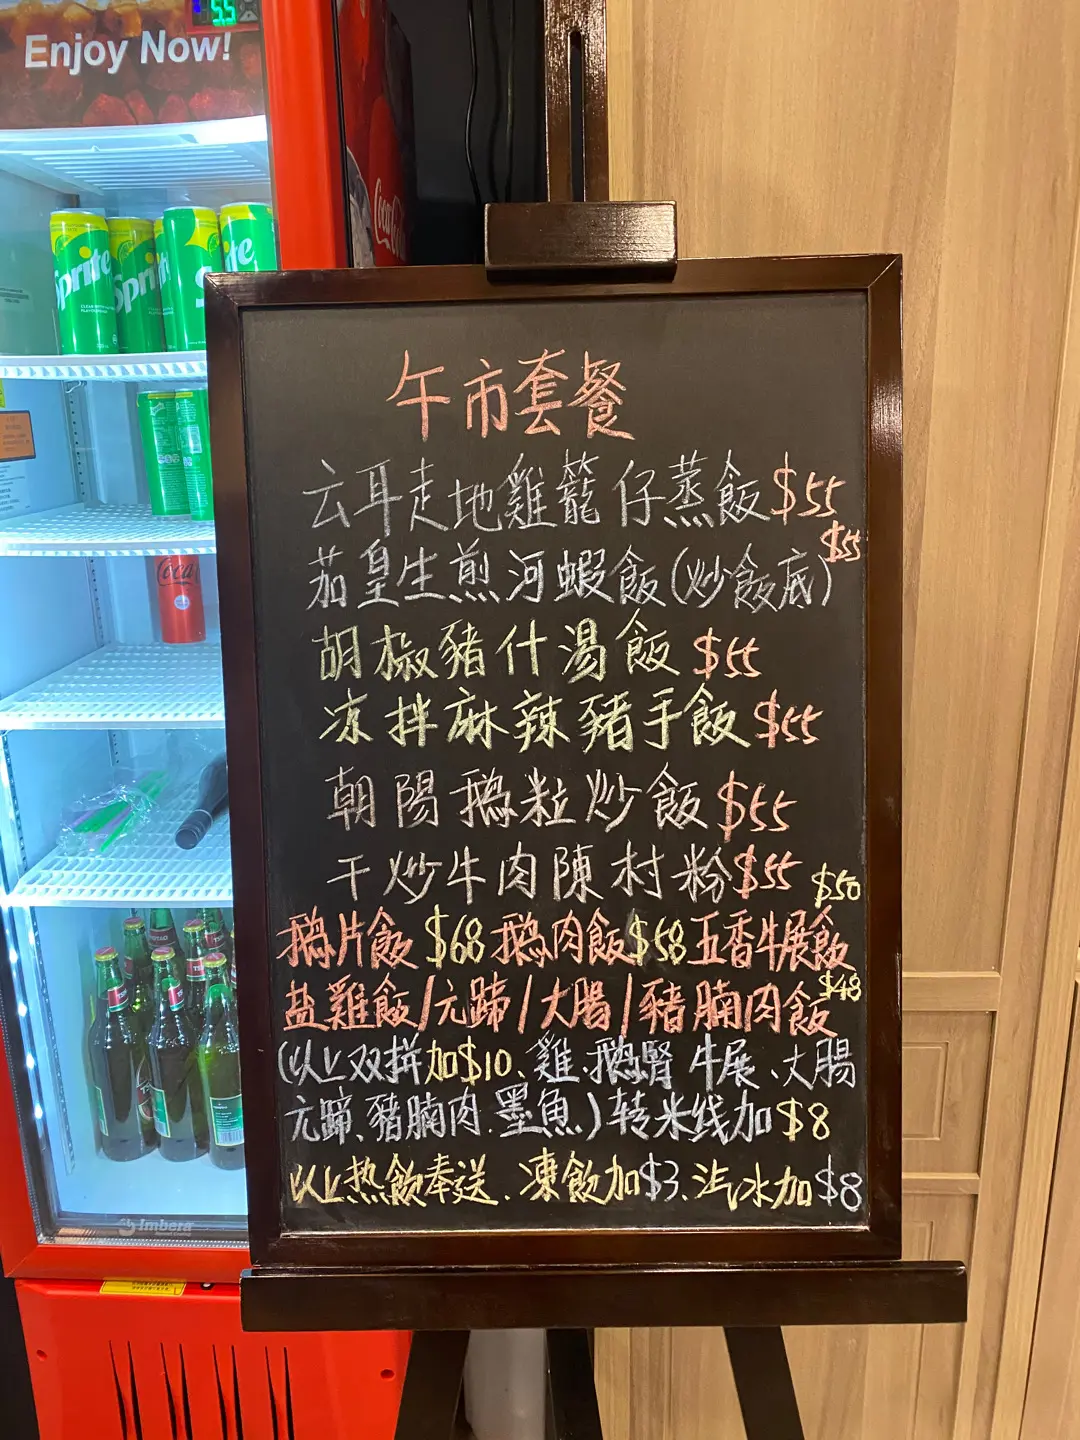 5.5
Enjoy Now!
Coca-Cola
Sprite
Sprite
Sprite
Coca
午市套餐
云耳走地雞籠仔蒸飯$55
茄皇生煎河蝦飯(炒飯底) $55
胡椒豬什湯飯 $55
凉拌麻辣豬手飯 $55
朝陽鵝粒炒飯 $55
干炒牛肉陳村粉 $55
鵝片飯 $68 鵝肉飯 $58 五香牛展飯 $50
盐雞飯/元蹄/大腸/豬腩肉飯 $48
(以上双拼加$10、雞、鵝腎 牛展、大腸
元蹄、豬腩肉、墨魚)转米线加$8
以上热飲奉送、凍飲加$3、汽水加$8
Imbera